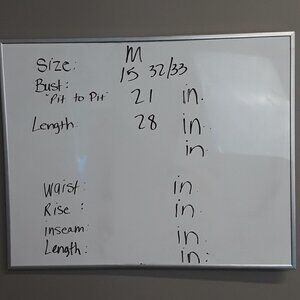 M
Size: 15 32/33
Bust:
"Pit to Pit" 21 in.
Length 28 in.
in.
Waist: in.
Rise: in.
inseam: in.
Length: in.